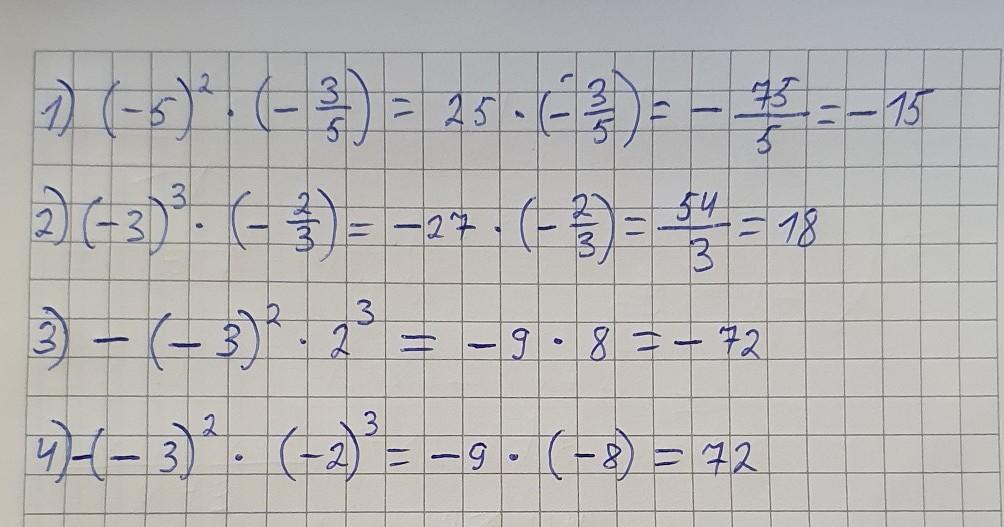 1) (-5)² · (- 3/5) = 25 · (- 3/5) = - 75/5 = - 15
2) (-3)³ · (- 2/3) = -27 · (- 2/3) = 54/3 = 18
3) - (- 3)² · 2³ = - 9 · 8 = - 72
4) -(- 3)² · (-2)³ = -9 · (-8) = 72